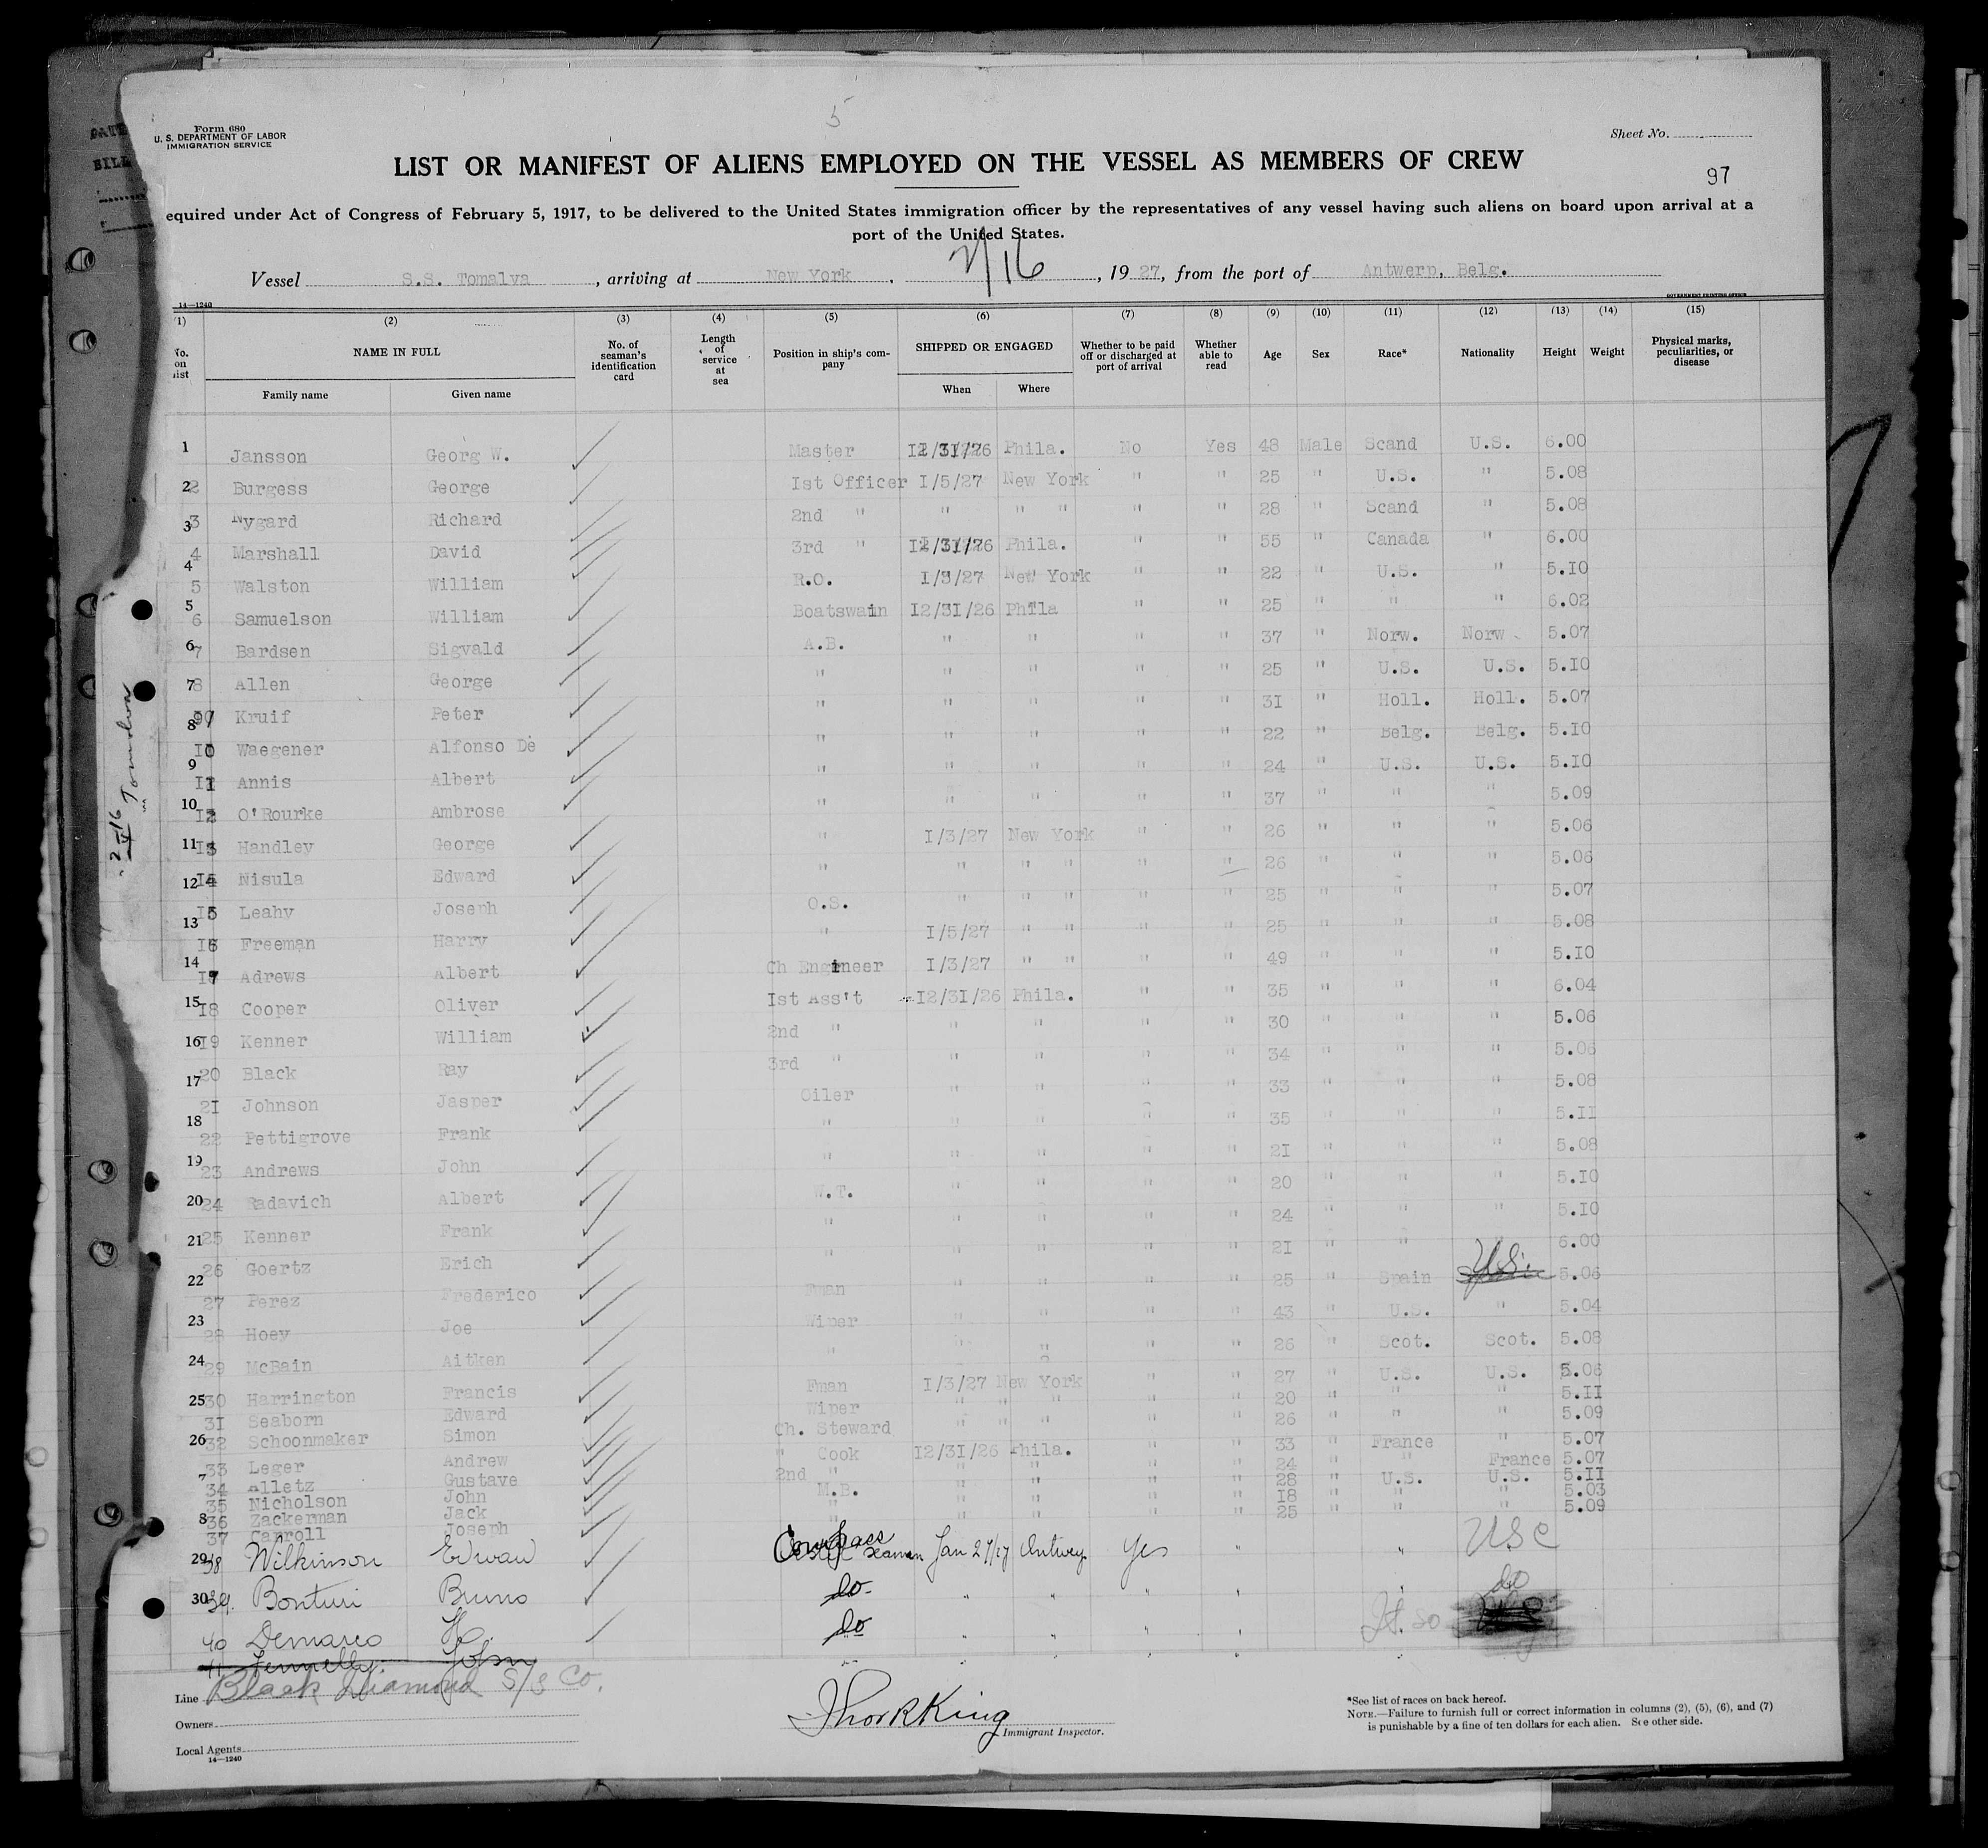 5
Form 680
U. S. DEPARTMENT OF LABOR
IMMIGRATION SERVICE
Sheet No.
LIST OR MANIFEST OF ALIENS EMPLOYED ON THE VESSEL AS MEMBERS OF CREW
97
equired under Act of Congress of February 5, 1917, to be delivered to the United States immigration officer by the representatives of any vessel having such aliens on board upon arrival at a
port of the United States.
Vessel S.S. Tomalva, arriving at New York, 2/16, 1927, from the port of Antwerp, Belg.
14—1240 GOVERNMENT PRINTING OFFICE
(1) (2) (3) (4) (5) (6) (7) (8) (9) (10) (11) (12) (13) (14) (15)
No. on list NAME IN FULL Family name Given name No. of seaman's identification card Length of service at sea Position in ship's company SHIPPED OR ENGAGED When Where Whether to be paid off or discharged at port of arrival Whether able to read Age Sex Race* Nationality Height Weight Physical marks, peculiarities, or disease
1 Jansson Georg W. Master 12/31/26 Phila. No Yes 48 Male Scand U.S. 6.00
2 Burgess George Ist Officer I/5/27 New York " " 25 " U.S. " 5.08
3 Nygard Richard 2nd " " " " " " 28 " Scand " 5.08
4 Marshall David 3rd " 12/31/26 Phila. " " 55 " Canada " 6.00
5 Walston William R.O. I/3/27 New York " " 22 " U.S. " 5.IO
6 Samuelson William Boatswain I2/3I/26 Phila " " 25 " " " 6.02
7 Bardsen Sigvald A.B. " " " " 37 " Norw. Norw 5.07
8 Allen George " " " " " 25 " U.S. U.S. 5.IO
9 Kruif Peter " " " " " 3I " Holl. Holl. 5.07
10 Waegener Alfonso De " " " " " 22 " Belg. Belg. 5.IO
11 Annis Albert " " " " " 24 " U.S. U.S. 5.IO
12 O'Rourke Ambrose " " " " " 37 " " " 5.09
13 Handley George " I/3/27 New York " " 26 " " " 5.06
14 Nisula Edward " " " " " " 26 " " " 5.06
15 Leahy Joseph O.S. " " " " " 25 " " " 5.07
16 Freeman Harry " I/5/27 " " " " 25 " " " 5.08
17 Adrews Albert Ch Engineer I/3/27 " " " " 49 " " " 5.IO
I8 Cooper Oliver Ist Ass't I2/3I/26 Phila. " " 35 " " " 6.04
I9 Kenner William 2nd " " " " " 30 " " " 5.06
20 Black Ray 3rd " " " " " 34 " " " 5.06
2I Johnson Jasper Oiler " " " " 33 " " " 5.08
22 Pettigrove Frank " " " " " 35 " " " 5.II
23 Andrews John " " " " " 2I " " " 5.08
24 Radavich Albert W.T. " " " " 20 " " " 5.IO
25 Kenner Frank " " " " " 24 " " " 5.IO
26 Goertz Erich " " " " " 2I " " 6.00
27 Perez Frederico Fman " " " " 25 " Spain U.S. 5.06
28 Hoey Joe Wiper " " " " 43 " U.S. " 5.04
29 McBain Aitken " " " " " 26 " Scot. Scot. 5.08
30 Harrington Francis Fman I/3/27 New York " " 27 " U.S. U.S. 5.06
3I Seaborn Edward Wiper " " " " " 20 " " " 5.II
32 Schoonmaker Simon Ch. Steward " " " " " 26 " " " 5.09
33 Leger Andrew " Cook I2/3I/26 Phila. " " 33 " France " 5.07
34 Alletz Gustave 2nd " " " " " 24 " " France 5.07
35 Nicholson John M.B. " " " " 28 " U.S. U.S. 5.II
36 Zackerman Jack " " " " " I8 " " " 5.03
37 Carroll Joseph " " " " " 25 " " " 5.09
38 Wilkinson Edward Seamen Jan 27/27 Antwerp Yes " " USC
39. Bonturi Bruno do " " " " " do
40 Demarco H. do " " " " It. so
41 Fennelly John
Line Black Diamond S/S Co.
Owners
Local Agents
14—1240
Thor R King
Immigrant Inspector.
*See list of races on back hereof.
NOTE.—Failure to furnish full or correct information in columns (2), (5), (6), and (7)
is punishable by a fine of ten dollars for each alien. See other side.
2/16 Tomalva